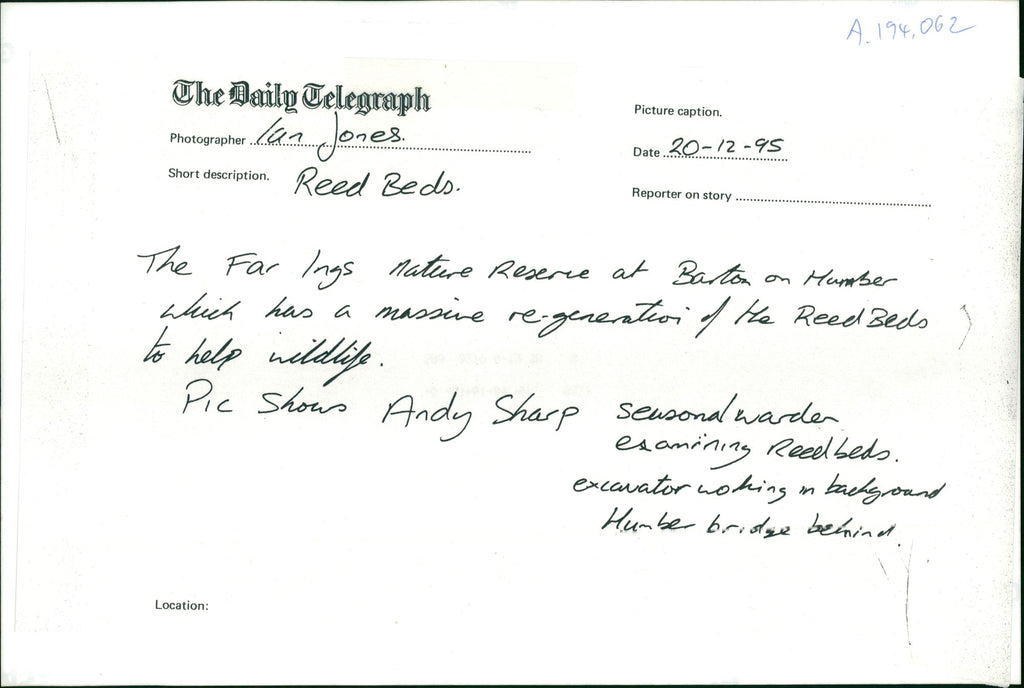 A.194,062
The Daily Telegraph
Photographer Ian Jones.
Picture caption.
Date 20-12-95
Short description. Reed Beds.
Reporter on story
The Far Ings Nature Reserve at Barton on Humber
which has a massive re-generation of the Reed Beds
to help wildlife.
Pic Shows Andy Sharp seasonal warden
examining Reedbeds.
excavator working in background
Humber bridge behind.
Location: